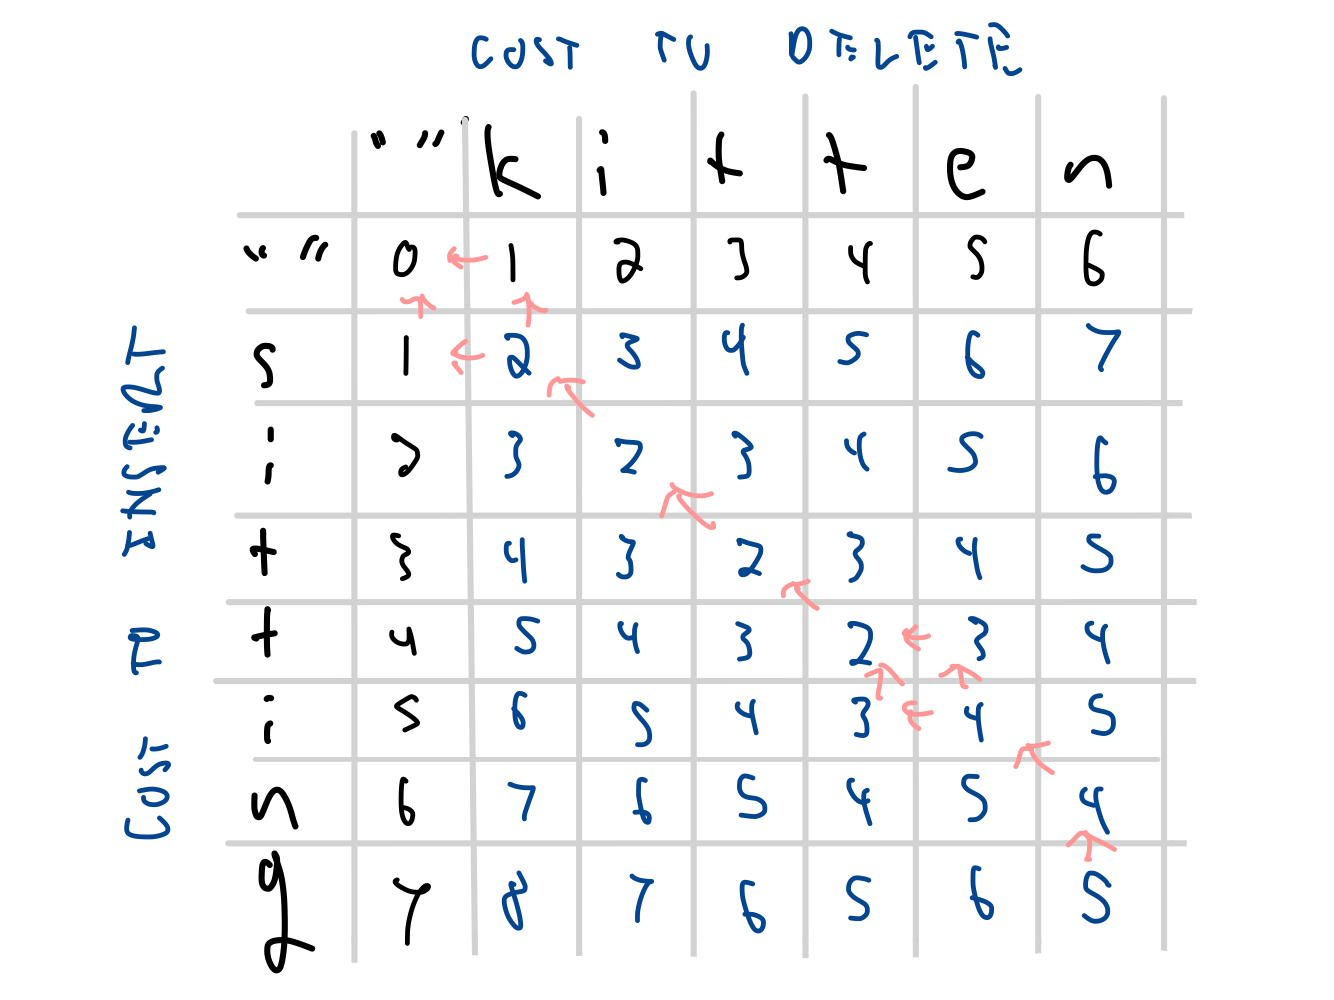 COST TO DELETE
COST TO INSERT
"" k i t t e n
"" 0 1 2 3 4 5 6
s 1 2 3 4 5 6 7
i 2 3 2 3 4 5 6
t 3 4 3 2 3 4 5
t 4 5 4 3 2 3 4
i 5 6 5 4 3 4 5
n 6 7 6 5 4 5 4
g 7 8 7 6 5 6 5